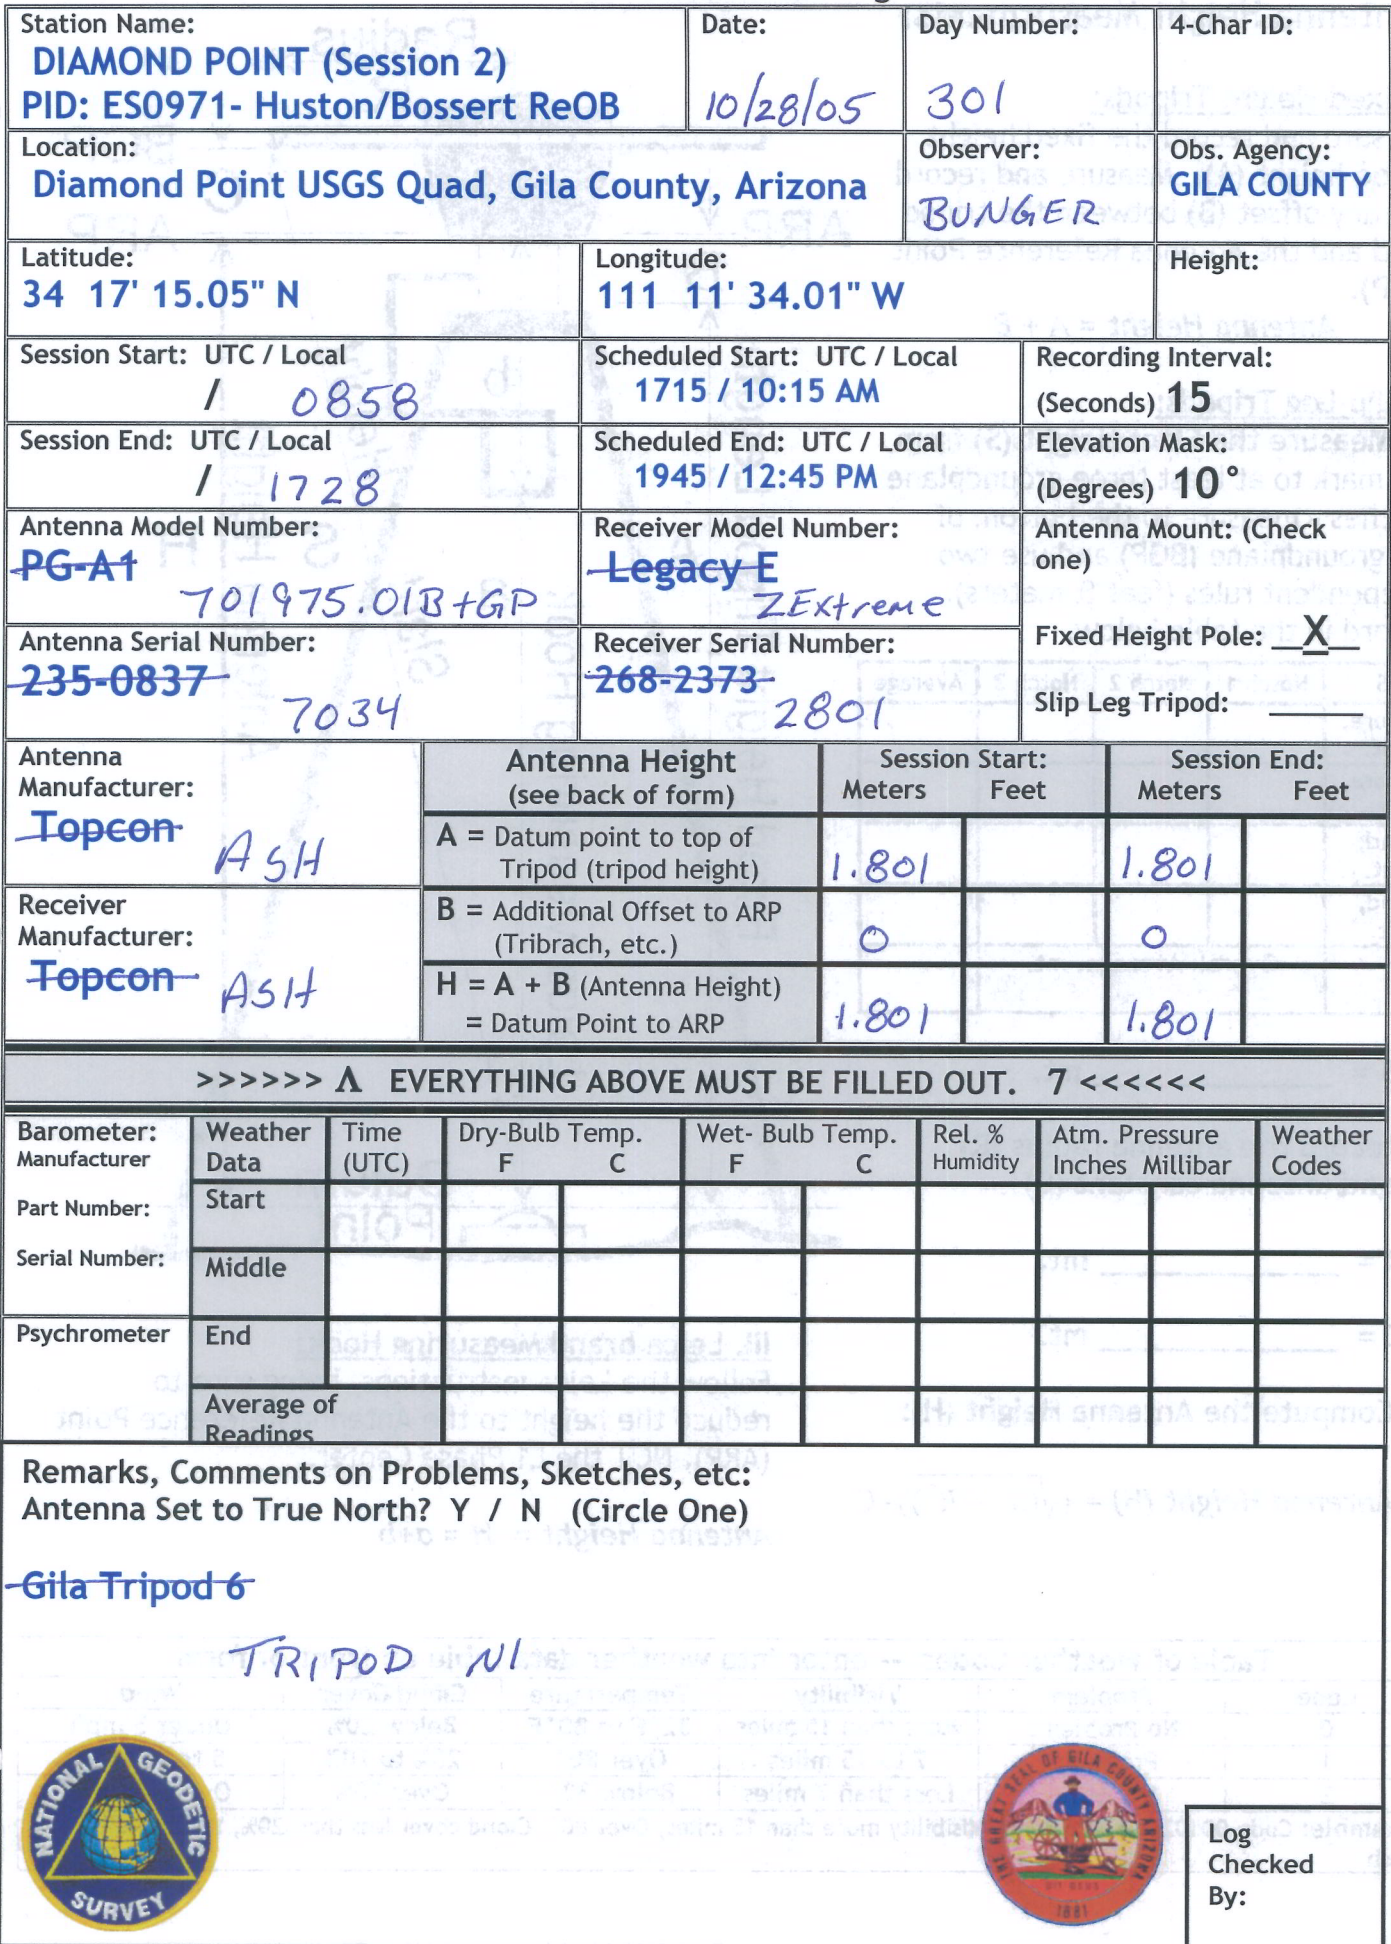 Station Name:
DIAMOND POINT (Session 2)
PID: ES0971- Huston/Bossert ReOB
Date:
10/28/05
Day Number:
301
4-Char ID:
Location:
Diamond Point USGS Quad, Gila County, Arizona
Observer:
BUNGER
Obs. Agency:
GILA COUNTY
Latitude:
34 17' 15.05" N
Longitude:
111 11' 34.01" W
Height:
Session Start: UTC / Local
/ 0858
Scheduled Start: UTC / Local
1715 / 10:15 AM
Recording Interval:
(Seconds) 15
Session End: UTC / Local
/ 1728
Scheduled End: UTC / Local
1945 / 12:45 PM
Elevation Mask:
(Degrees) 10°
Antenna Model Number:
PG-A1
701975.01B+GP
Receiver Model Number:
Legacy E
ZExtreme
Antenna Mount: (Check
one)
Fixed Height Pole: X
Slip Leg Tripod:
Antenna Serial Number:
235-0837
7034
Receiver Serial Number:
268-2373
2801
Antenna
Manufacturer:
Topcon
ASH
Receiver
Manufacturer:
Topcon
ASH
Antenna Height
(see back of form)
Session Start:
Meters Feet
Session End:
Meters Feet
A = Datum point to top of
Tripod (tripod height)
1.801 1.801
B = Additional Offset to ARP
(Tribrach, etc.)
0 0
H = A + B (Antenna Height)
= Datum Point to ARP
1.801 1.801
>>>>>> Λ EVERYTHING ABOVE MUST BE FILLED OUT. 7 <<<<<<
Barometer:
Manufacturer
Part Number:
Serial Number:
Psychrometer
Weather
Data
Time
(UTC)
Dry-Bulb Temp.
F C
Wet- Bulb Temp.
F C
Rel. %
Humidity
Atm. Pressure
Inches Millibar
Weather
Codes
Start
Middle
End
Average of
Readings
Remarks, Comments on Problems, Sketches, etc:
Antenna Set to True North? Y / N (Circle One)
Gila Tripod 6
TRIPOD N1
NATIONAL GEODETIC SURVEY
THE GREAT SEAL OF GILA COUNTY ARIZONA
1881
Log
Checked
By: